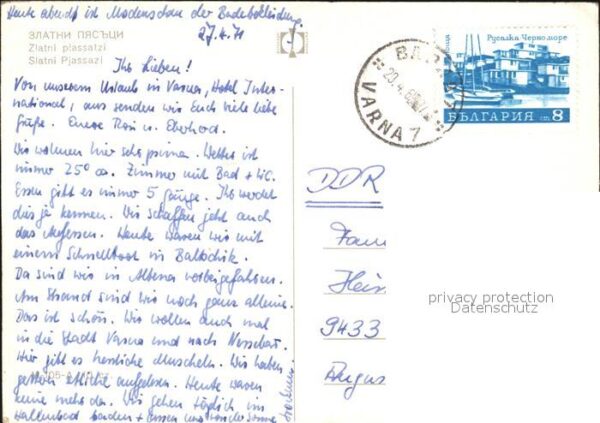 Heute abend ist Modenschau der Badebekleidung.
27.4.71
ЗЛАТНИ ПЯСЪЦИ
Zlatni plassatzi
Slatni Pjassazi
Ihr Lieben!
Von unserem Urlaub in Varna, Hotel Inter-
national, aus senden wir Euch viele liebe
Grüße. Eure Rosi u. Eberhard.
Wir wohnen hier ganz prima. Wetter ist
immer 25° ca. Zimmer mit Bad + WC.
Essen gibt es immer 5 Gänge. Ihr werdet
dies ja kennen. Wir schaffen jetzt auch
das Aufessen. Heute waren wir mit
einem Schnellboot in Baltschik.
Da sind wir in Albena vorbeigefahren.
Am Strand sind wir noch ganz alleine.
Das ist schön. Wir wollen auch mal
in die Stadt Varna und nach Nessebar.
Hier gibt es herrliche Muscheln. Wir haben
gestern etliche aufgelesen. Heute waren
keine mehr da. Wir gehen täglich ins
Hallenbad baden + lassen uns von der Sonne
VARNA 7
Русалка Черно море
БЪЛГАРИЯ ст. 8
DDR
Fam
Hein
9433
privacy protection
Datenschutz